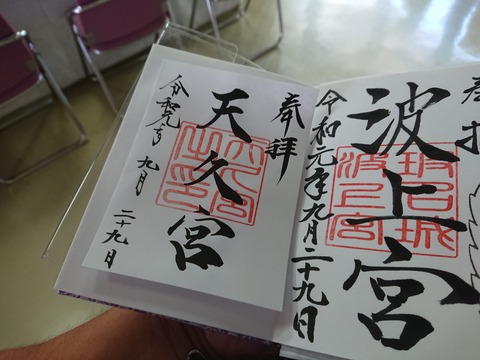 奉拝
波上宮
波上宮
令和元年九月二十九日
奉拝
天久宮
令和元年 九月 二十九日